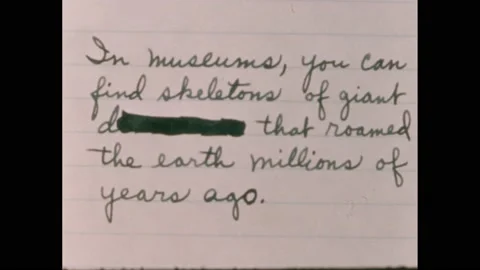 In museums, you can
find skeletons of giant
d that roamed
the earth millions of
years ago.